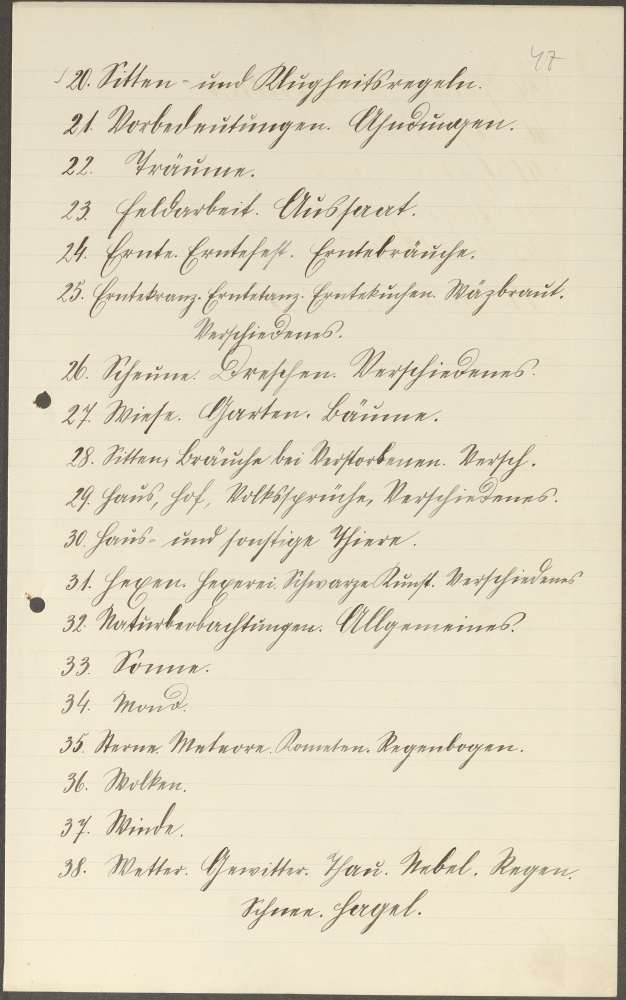 47
20. Sitten- und Klugheitsregeln.
21. Vorbedeutungen. Ahndungen.
22. Träume.
23. Feldarbeit. Aussaat.
24. Ernte. Erntefest. Erntebräuche.
25. Erntekranz. Erntetanz. Erntekuchen. Wäzbraut.
Verschiedenes.
26. Scheune. Dreschen. Verschiedenes.
27. Wiese. Garten. Bäume.
28. Sitten, Bräuche bei Verstorbenen. Versch.
29. Haus, Hof, Volkssprüche, Verschiedenes.
30. Haus- und sonstige Thiere.
31. Hexen. Hexerei. Schwarze Kunst. Verschiedenes
32. Naturbeobachtungen. Allgemeines.
33. Sonne.
34. Mond.
35. Sterne. Meteore. Kometen. Regenbogen.
36. Wolken.
37. Winde.
38. Wetter. Gewitter. Thau. Nebel. Regen.
Schnee. Hagel.